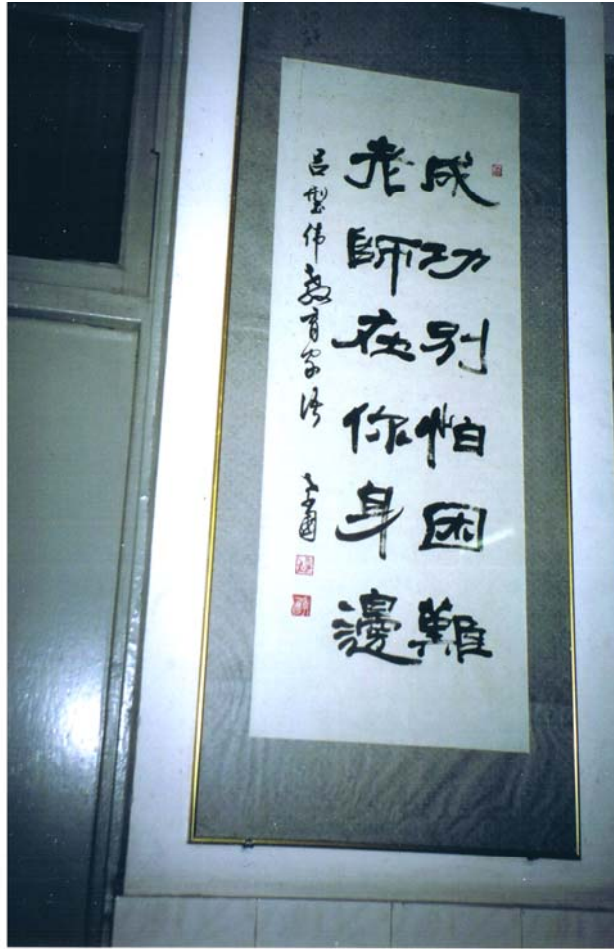 成功别怕困難
老師在你身邊
吕型伟教育家语